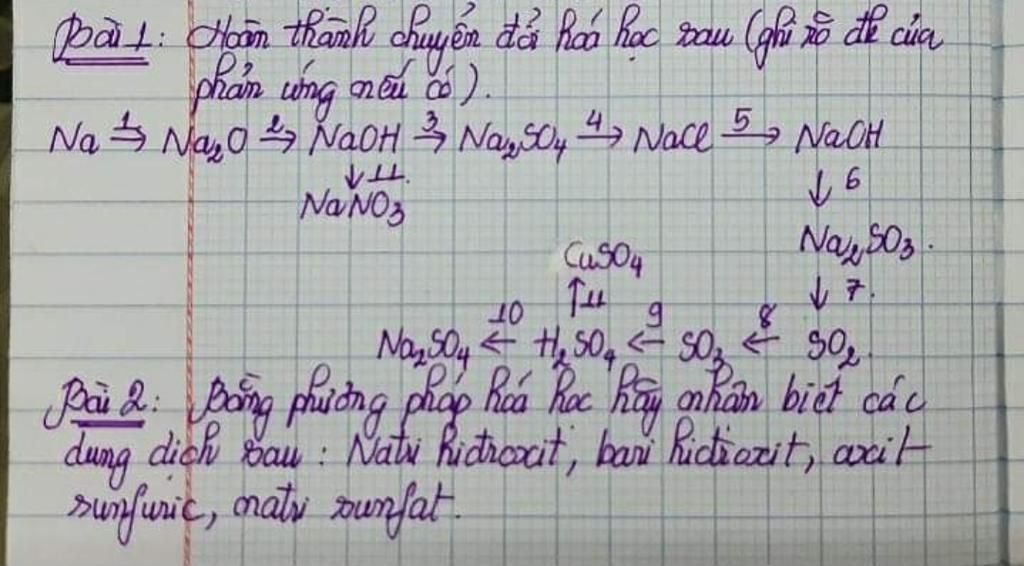 Bài 1: Hoàn thành chuyển đổi hoá học sau (ghi rõ đk của
phản ứng nếu có).
Na 1→ Na2O 2→ NaOH 3→ Na2SO4 4→ NaCl 5→ NaOH
↓ 11. ↓ 6
NaNO3
Na2SO3.
CuSO4
↑ 11 ↓ 7.
Na2SO4 10← H2SO4 9← SO3 8← SO2.
Bài 2: Bằng phương pháp hoá học hãy nhận biết các
dung dịch sau: Natri hiđroxit, bari hiđroxit, axit
sunfuric, natri sunfat.